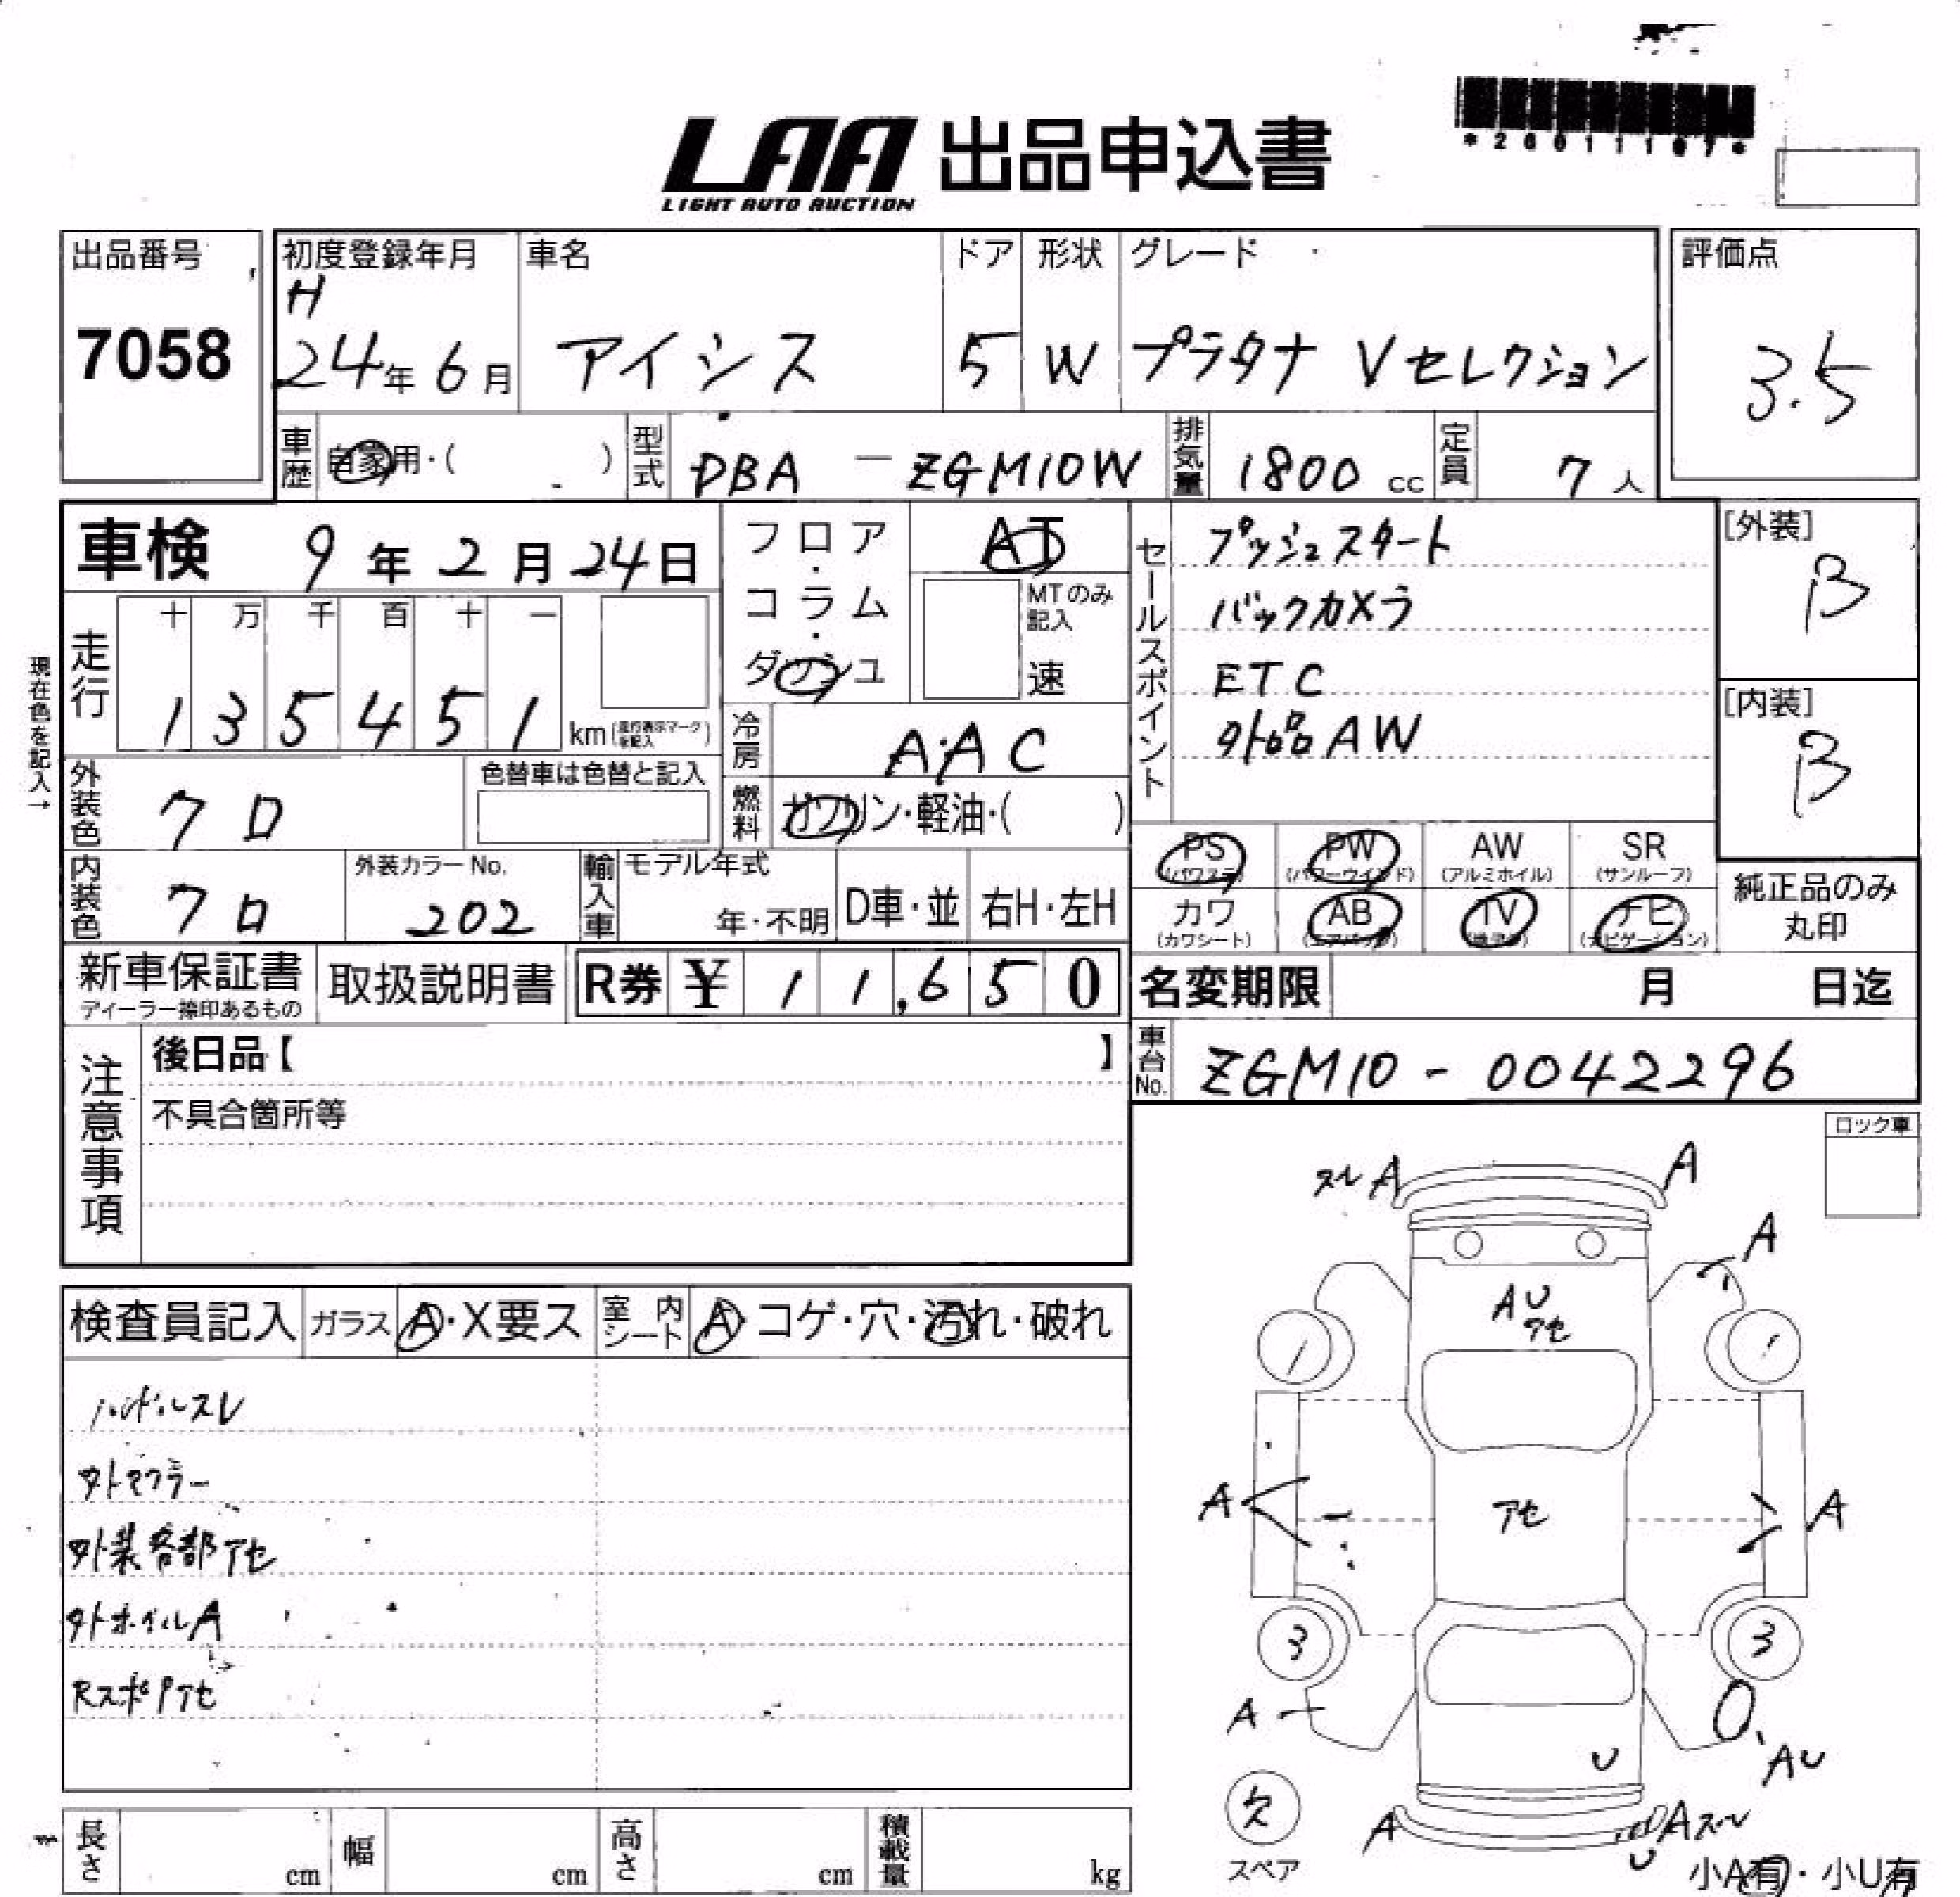 *26011107*
LAA 出品申込書
LIGHT AUTO AUCTION
出品番号
7058
初度登録年月
H
24年 6月
車名
アイシス
ドア
5
形状
W
グレード
プラタナ Vセレクション
評価点
3.5
車歴
自家用・( )
型式
DBA - ZGM10W
排気量
1800 cc
定員
7人
車検 9年 2月 24日
フロア・コラム・ダッシュ
AT
MTのみ記入
速
セールスポイント
プッシュスタート
バックカメラ
ETC
外品AW
[外装]
B
[内装]
B
現在色を記入→
走行
十 万 千 百 十 一
1 3 5 4 5 1 km
(走行表示マークを記入)
冷房
AAC
燃料
ガソリン・軽油・( )
外装色
クロ
色替車は色替と記入
内装色
クロ
外装カラーNo.
202
輸入車
モデル年式
年・不明
D車・並
右H・左H
PS
(パワステ)
PW
(パワーウインド)
AW
(アルミホイル)
SR
(サンルーフ)
カワ
(カワシート)
AB
(エアバッグ)
TV
ナビ
(ナビゲーション)
純正品のみ
丸印
新車保証書
ディーラー捺印あるもの
取扱説明書
R券 ¥ 11,650
名変期限 月 日迄
車台No.
ZGM10-0042296
注意事項
後日品【 】
不具合箇所等
ロック車
検査員記入
ガラス
A・X要ス
室内シート
A・コゲ・穴・汚れ・破れ
ハンドルスレ
外マフラー
外装各部アセ
外ホイルA
RスポPアセ
スレA
A
A
AU
アセ
A
アセ
A
3
3
A
AU
U
欠
スペア
A
Aスレ
U
小A有・小U有
長さ cm
幅 cm
高さ cm
積載量 kg